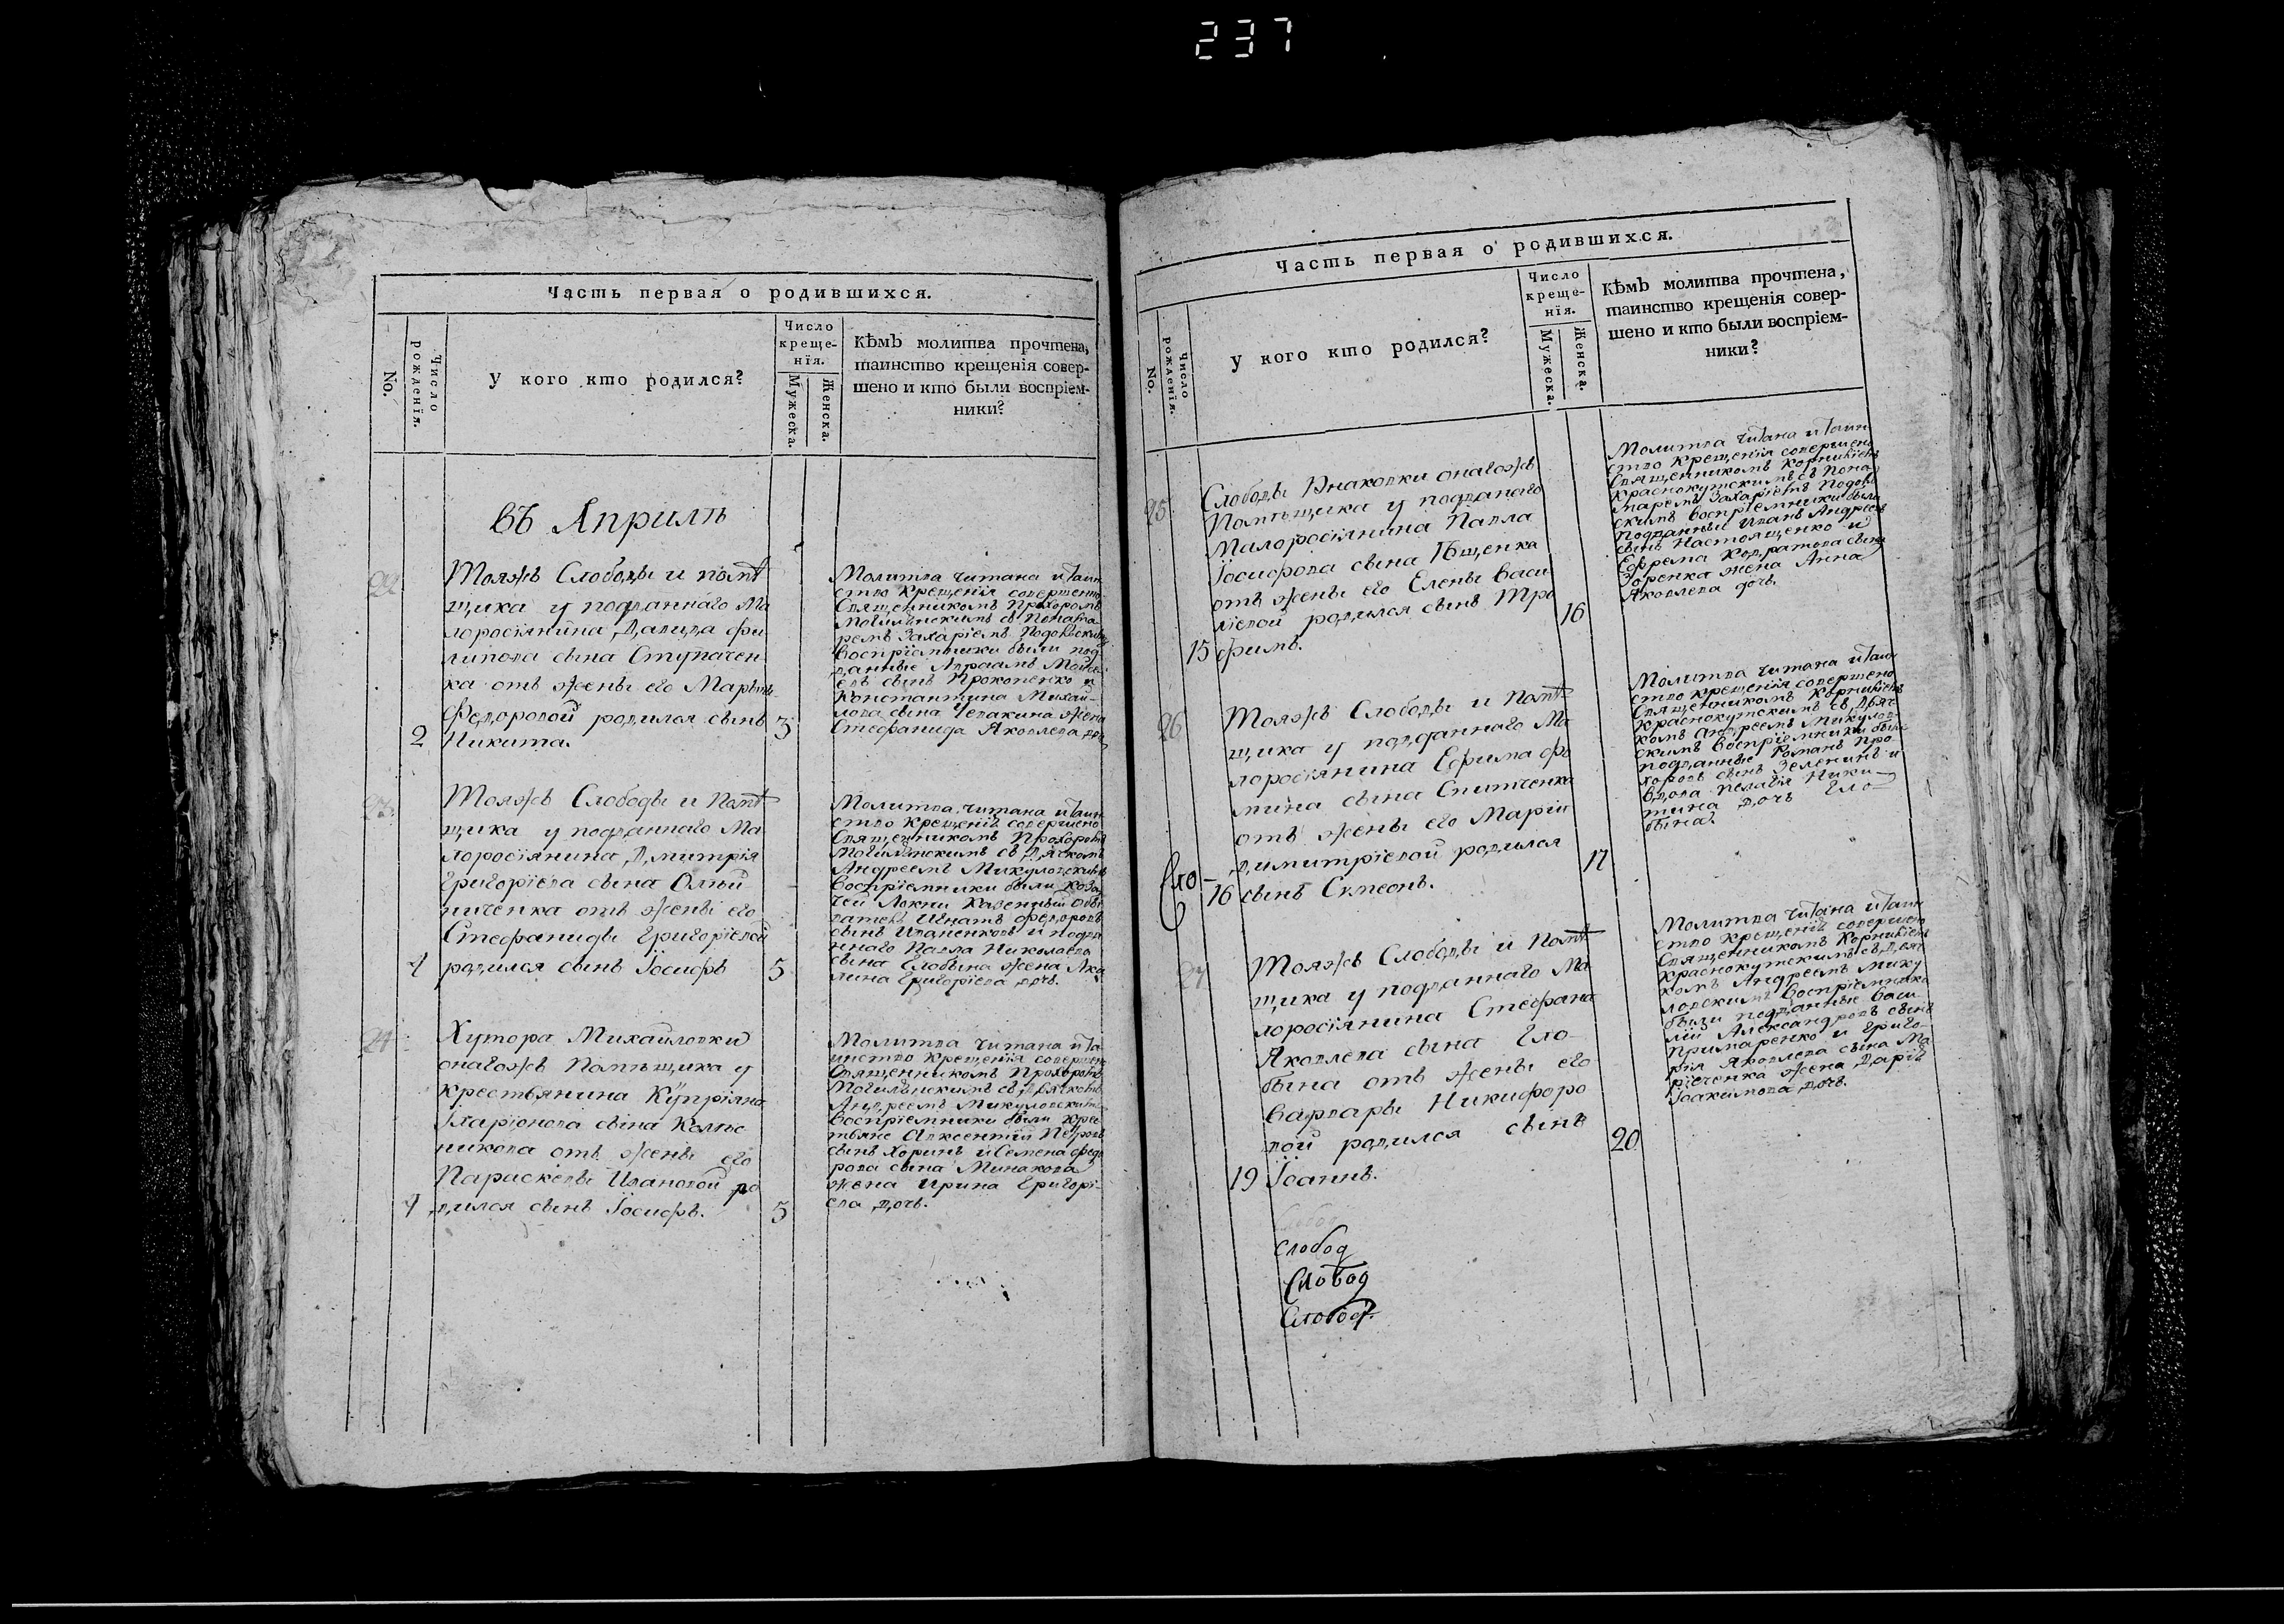 237
Часть первая о родившихся.
No.
Число рожденїя.
У кого кто родился?
Число
креще-
нїя.
Мужеска.
Женска.
Кѣмъ молитва прочтена,
таинство крещенїя совер-
шено и кто были воспрїем-
ники?
въ Априлѣ
22
Тояжъ Слободы и помѣ
щика у подданнаго Ма
лоросїянина Давида Фи
липова сына Ступачен
ка отъ жены его Марѳы
Федоровой родился сынъ
2
Никита.
3
Молитва читана и таин
ство крещенїя совершено
Священникомъ Прохоромъ
Могилянскимъ съ Понама
ремъ Захарїемъ Подольскимъ
Воспрїемники были под
данные Авраамъ Мойсе
евъ сынъ Прокопенко и
Константина Михай-
лова сына Чевакина жена
Стефанида Яковлева дочь
23
Тояжъ Слободы и Помѣ
щика у подданнаго Ма
лоросїянина Димитрїя
Григорїева сына Олѣй
ниченка отъ жены его
Стефаниды Григорїевой
4
родился сынъ Іосифъ
5
Молитва читана и таин
ство крещенїя совершено
Священникомъ Прохоромъ
Могилянскимъ съ Дячкомъ
Андреемъ Микуловскимъ
Воспрїемники были Коза
чей Локни Казенный обы
ватель Игнатъ Федоровъ
сынъ Иваненковъ и подда
ннаго Павла Николаева
сына Словына жена Аку
лина Григорїева дочь.
24
Хутора Михайловки
онагожъ Помѣщика у
крестьянина Купрїяна
Іларїонова сына Колѣс
никова отъ жены его
Параскевы Ивановой ро
4
дился сынъ Іосифъ.
5
Молитва читана и та
инство крещенїя соверше
Священникомъ Прохоромъ
Могилянскимъ съ Дячкомъ
Андреемъ Микуловскимъ
Воспрїемники были крес
тьяне Авксентїй Петровъ
сынъ Хоринъ и Семена Федо
рова сына Минакова
жена Ирина Григорї-
ева дочь.
Часть первая о родившихся.
No.
Число рожденїя.
У кого кто родился?
Число
креще-
нїя.
Мужеска.
Женска.
Кѣмъ молитва прочтена,
таинство крещенїя совер-
шено и кто были воспрїем-
ники?
25
Слободы Юнаковки онагожъ
Помѣщика у подданаго
Малоросїянина Павла
Іосифова сына Ющенка
отъ жены его Елены Васи
лїевой родился сынъ Тро
15
фимъ.
16
Молитва читана и таин
ство крещенїя совершено
Священникомъ Корнилїемъ
Краснокутскимъ съ Пона
маремъ Захарїемъ Подоль
скимъ воспрїемники были
подданные Иванъ Андреевъ
сынъ Настоященко и
Ефрема Кодратова сына
Зоренка жена Анна
Яковлева дочь.
26
Тояжъ Слободы и Помѣ
щика у подданнаго Ма
лоросїянина Ефима Фо
мина сына Снитченка
отъ жены его Марїи
Димитрїевой родился
Сло-
16
сынъ Симеонъ.
17
Молитва читана и таин
ство крещенїя совершено
Священникомъ Корнилїемъ
Краснокутскимъ съ Дяч
комъ Андреемъ Микулов
скимъ воспрїемники были
подданные Романъ Про
хоровъ сынъ Зеленинъ и
вдова Пелагїя Ники
тина дочь Сло-
вына.
27
Тояжъ Слободы и Помѣ
щика у подданнаго Ма
лоросїянина Стефана
Яковлева сына Сло-
вына отъ жены его
Варвары Никифоро
вой родился сынъ
19
Іоаннъ.
20
Молитва читана и таин
ство крещенїя совершено
Священникомъ Корнилїемъ
Краснокутскимъ съ Дяч
комъ Андреемъ Мику
ловскимъ воспрїемники
были подданные Васи
лїй Александровъ сынъ
Примаренко и Григо-
рїя Яковлева сына Ма
рїеченка жена Дарїя
Іоакимова дочь.
слобод
Слобод
Слобод